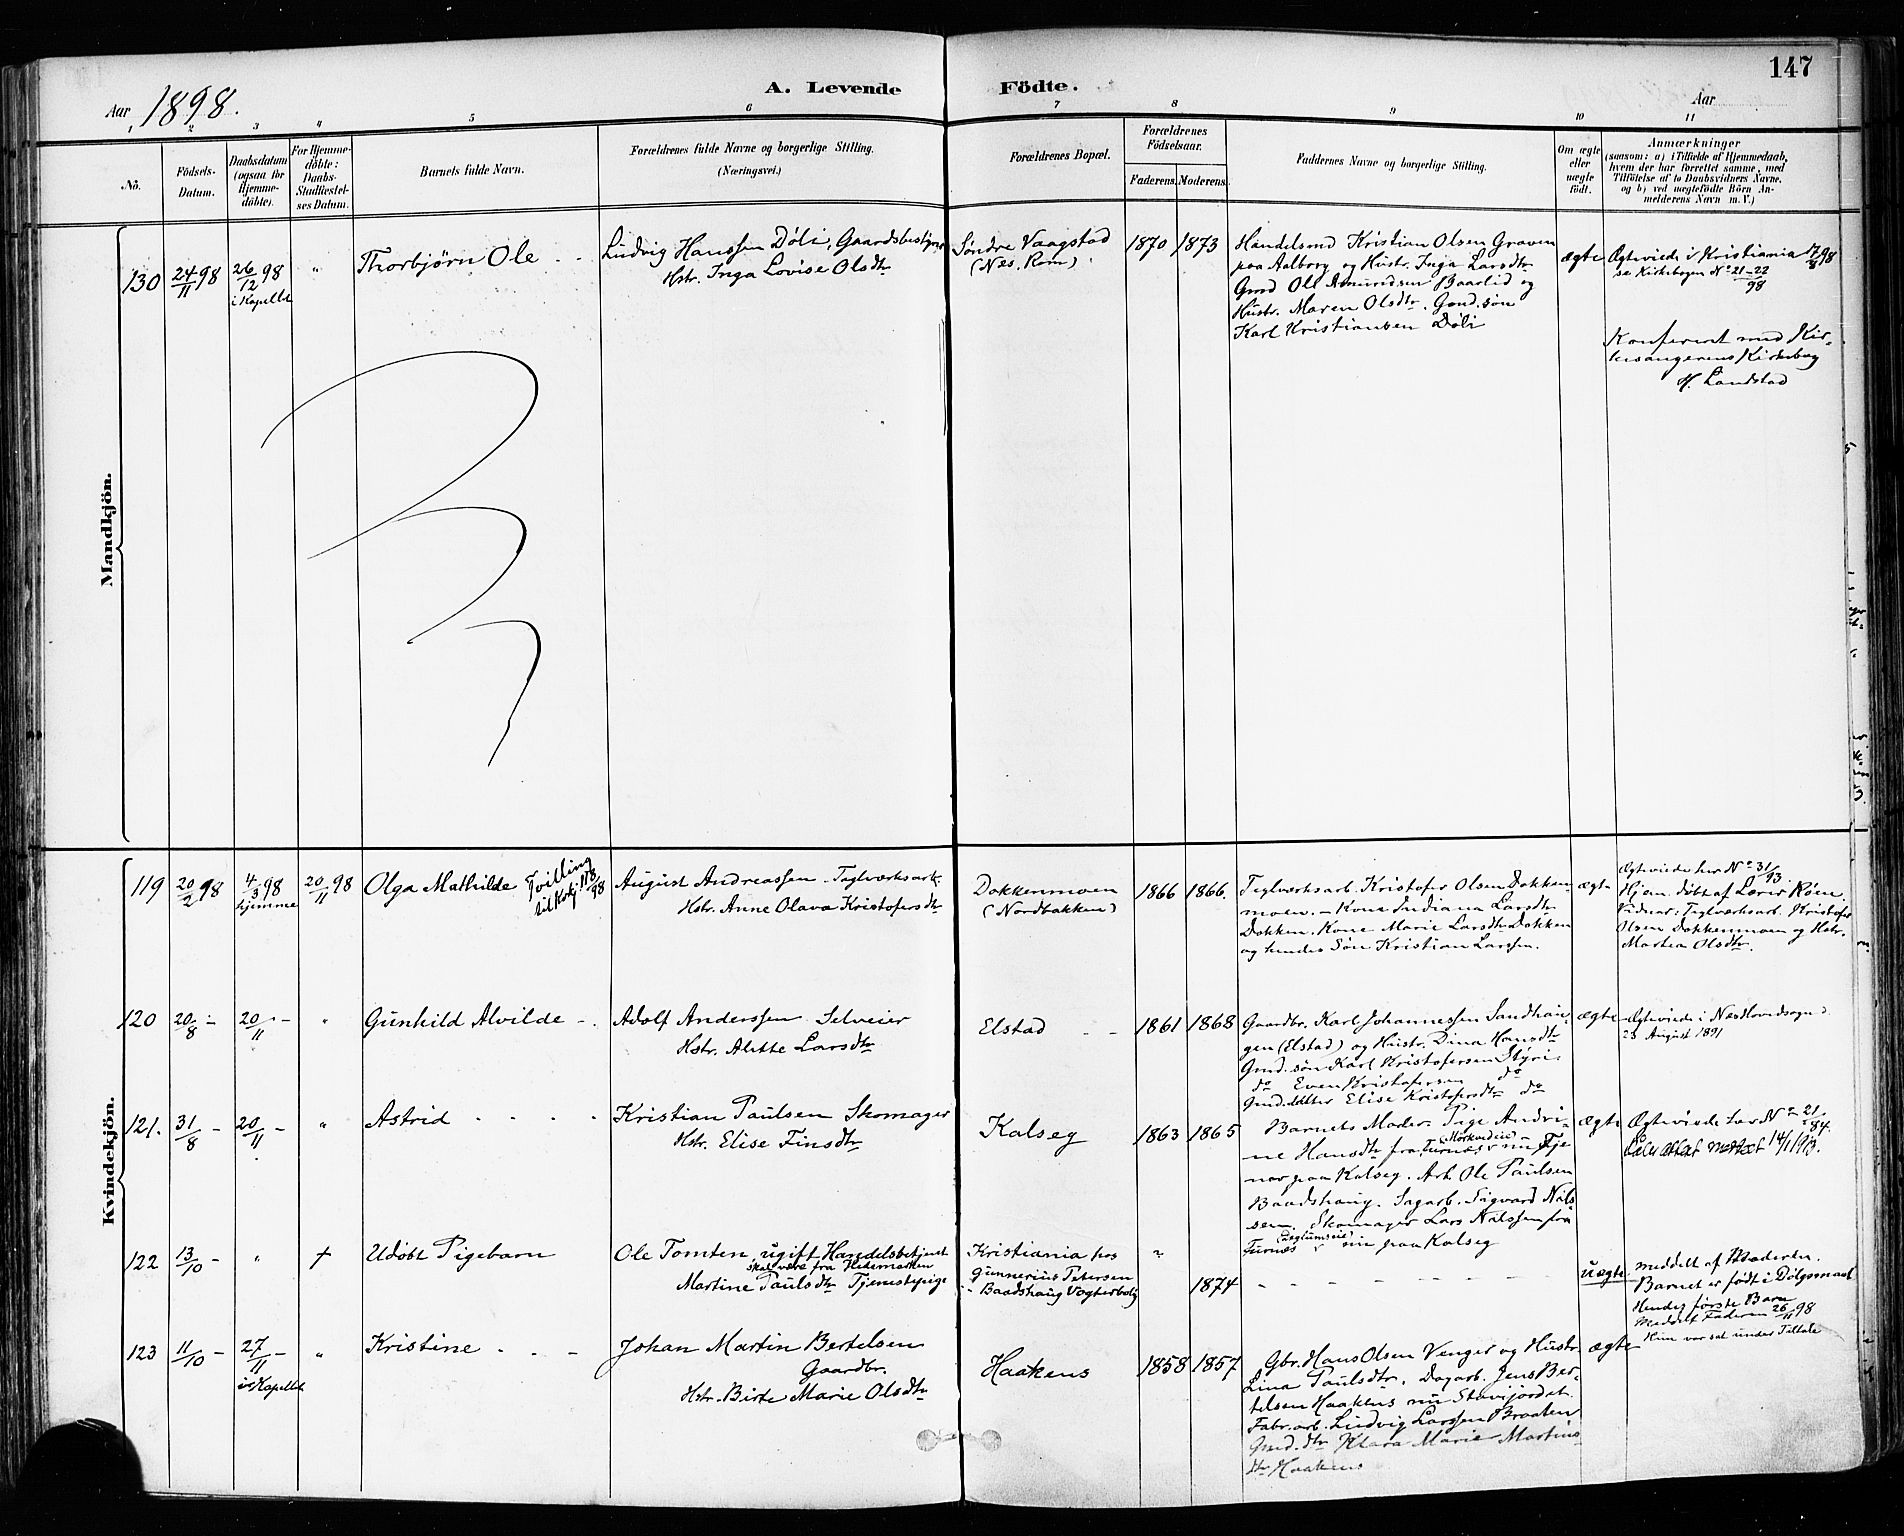 147
Aar 1898.
A. Levende Födte.
Aar
1 2 3 4 5 6 7 8 9 10 11
No.
Födsels-
Datum.
Daabsdatum
(ogsaa for
Hjemme-
döbte).
For Hjemme-
döbte:
Daabs-
Stadfæstel-
ses Datum.
Barnets fulde Navn.
Forældrenes fulde Navne og borgerlige Stilling.
(Næringsvei.)
Forældrenes Bopæl.
Forældrenes
Födselsaar.
Faderens. Moderens.
Faddernes Navne og borgerlige Stilling.
Om ægte
eller
uægte
födt.
Anmærkninger
(saasom: a) i Tilfælde af Hjemmedaab,
hvem der har forrettet samme, med
Tilföielse af to Daabsvidners Navne,
og b) ved uægtefödte Börn An-
melderens Navn m. V.)
Mandkjön.
130
24/11 98
26/12 98
i Kapellet
"
Thorbjørn Ole - -
Ludvig Hanssen Döli, Gaardsbestyrer
Hstr. Inga Lovise Olsdtr
Söndre Vaagstad
(Nes, Rom)
1870
1873
Handelsmd Kristian Olsen Graven
paa Aalborg og Hustr. Inga Larsdtr
Gmd Ole Asmundsen Baarlid og
Hustr. Maren Olsdtr. Gmd. søn
Karl Kristiansen Döli
ægte
Ægteviede i Kristiania 7/8 98
se Kirkebogen No 21-22/98
Konfereret med Kir-
kesangerens Kirkebog
H. Landstad
Kvindekjön.
119
20/2 98
4/3 98
hjemme
20/11 98
Olga Mathilde
Tvilling
til 118/98
August Andreassen Teglværksark.
Hstr. Anne Olava Kristofersdtr
Dokkenmoen
(Nordbakken)
1866
1866.
Teglværksarb. Kristofer Olsen Dokken
moen. - Kone Indiana Larsdtr
Dokken. Kone Marie Larsdtr Dokken
og hendes Søn Kristian Larssen.
ægte
Ægteviede her No 31/93.
Hjem. døbt af Lærer Røen.
Vidner: Teglværksarb. Kristofer
Olsen Dokkenmoen og Hstr.
Martea Olsdtr.
120
20/8 -
20/11 -
"
Gunhild Alvilde -.
Adolf Anderssen Selveier
Hstr. Alette Larsdtr
Elstad - -
1861
1868
Gaardbr. Karl Johannessen Sandhau-
gen (Elstad) og Hustr. Dina Hansdtr
Gmd. søn Karl Kristofersen Styri
do Even Kristofersen do
Gmd. datter Elise Kristofersdtr do
ægte
Ægteviede i Nes Hovedsogn d.
23 August 1891
121.
31/8 -
20/11 -
"
Astrid - - - -
Kristian Paulsen Skomager
Hstr. Elise Finsdtr
Kalseg
1863
1865
Barnets Moder. Pige Andri-
ne Hansdtr fra Furnes nu Tje-
ner paa Kalseg. Arb. Ole Paulsen
Baadshaug. Sagarb. Sigvard Nils-
sen. Skomager Lars Nilssen fra
Furnes nu paa Kalseg
ægte
Ægteviede her No 21/84.
14/1 1913.
122
13/10 -
"
+
Udøbt Pigebarn
Ole Tomten, ugift Handelsbetjent
skal være fra Hedemarken
Martine Paulsdtr Tjenestepige
Kristiania hos
Gunnerius Petersen
- Baadshaug Vogterbolig
"
1874
- - - - - - - -
uægte
meddelt af Moderen.
Barnet er født i Dølgsmaal
Hendes første Barn
Meddelt Faderen 26/11 98
Hun var sat under Tiltale
123
11/10 -
27/11 -
i Kapellet
"
Kristine - - -
Johan Martin Bertelsen
Gaardbr.
Hstr. Birte Marie Olsdtr
Haakens
1858
1857
Gbr. Hans Olsen Venger og Hustr.
Lina Paulsdtr. Dagarb. Jens Ber-
telsen Haakens nu Stavijordet.
Fabr. arb. Ludvig Larssen Braaten
Gmd. dtr Klara Marie Martins-
dtr Haakens
ægte